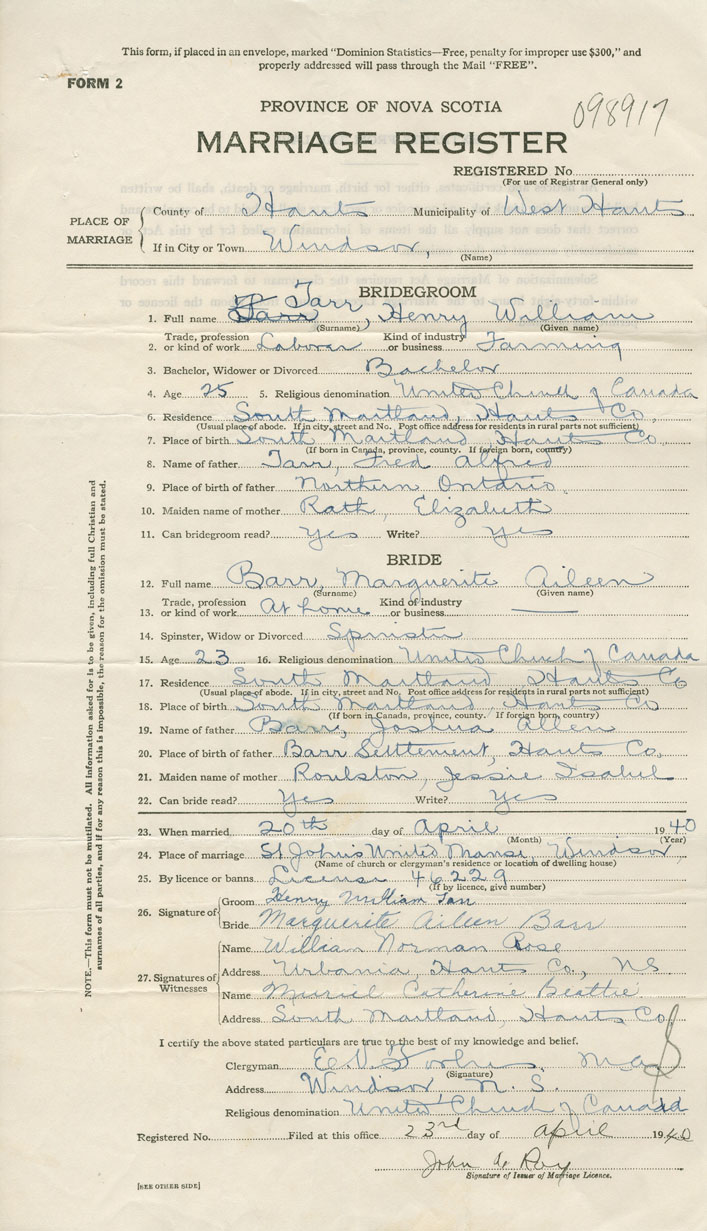 This form, if placed in an envelope, marked "Dominion Statistics—Free, penalty for improper use $300," and
properly addressed will pass through the Mail "FREE".
FORM 2
PROVINCE OF NOVA SCOTIA
098917
MARRIAGE REGISTER
REGISTERED No
(For use of Registrar General only)
PLACE OF MARRIAGE
County of Hants Municipality of West Hants
If in City or Town Windsor,
(Name)
BRIDEGROOM
Tarr
1. Full name Tarr, Henry William
(Surname) (Given name)
2. Trade, profession or kind of work Laborer Kind of industry or business Farming
3. Bachelor, Widower or Divorced Bachelor
4. Age 25 5. Religious denomination United Church of Canada
6. Residence South Maitland, Hants Co.
(Usual place of abode. If in city, street and No. Post office address for residents in rural parts not sufficient)
7. Place of birth South Maitland, Hants Co.
(If born in Canada, province, county. If foreign born, country)
8. Name of father Tarr, Fred Alfred
9. Place of birth of father Northern Ontario
10. Maiden name of mother Rath, Elizabeth
11. Can bridegroom read? Yes Write? Yes
BRIDE
12. Full name Barr, Marguerite Aileen
(Surname) (Given name)
13. Trade, profession or kind of work At home Kind of industry or business —
14. Spinster, Widow or Divorced Spinster
15. Age 23 16. Religious denomination United Church of Canada
17. Residence South Maitland Hants Co
(Usual place of abode. If in city, street and No. Post office address for residents in rural parts not sufficient)
18. Place of birth South Maitland, Hants Co
(If born in Canada, province, county. If foreign born, country)
19. Name of father Barr, Joshua Allen
20. Place of birth of father Barr Settlement, Hants Co.
21. Maiden name of mother Roulston, Jessie Isabel
22. Can bride read? Yes Write? Yes
23. When married 20th day of April 1940
(Month) (Year)
24. Place of marriage St John's United Manse, Windsor,
(Name of church or clergyman's residence or location of dwelling house)
25. By licence or banns License 46229
(If by licence, give number)
26. Signature of
Groom Henry William Tarr
Bride Marguerite Aileen Barr
27. Signatures of Witnesses
Name William Norman Rose
Address Urbania, Hants Co., NS
Name Muriel Catherine Beattie
Address South Maitland, Hants Co
I certify the above stated particulars are true to the best of my knowledge and belief.
Clergyman E. V. Forbes, M.A.
(Signature)
Address Windsor N. S.
Religious denomination United Church of Canada
Registered No. Filed at this office 23rd day of April 1940
John Roy
Signature of Issuer of Marriage Licence.
[SEE OTHER SIDE]
NOTE.—This form must not be mutilated. All information asked for is to be given, including full Christian and
surnames of all parties, and if for any reason this is impossible, the reason for the omission must be stated.